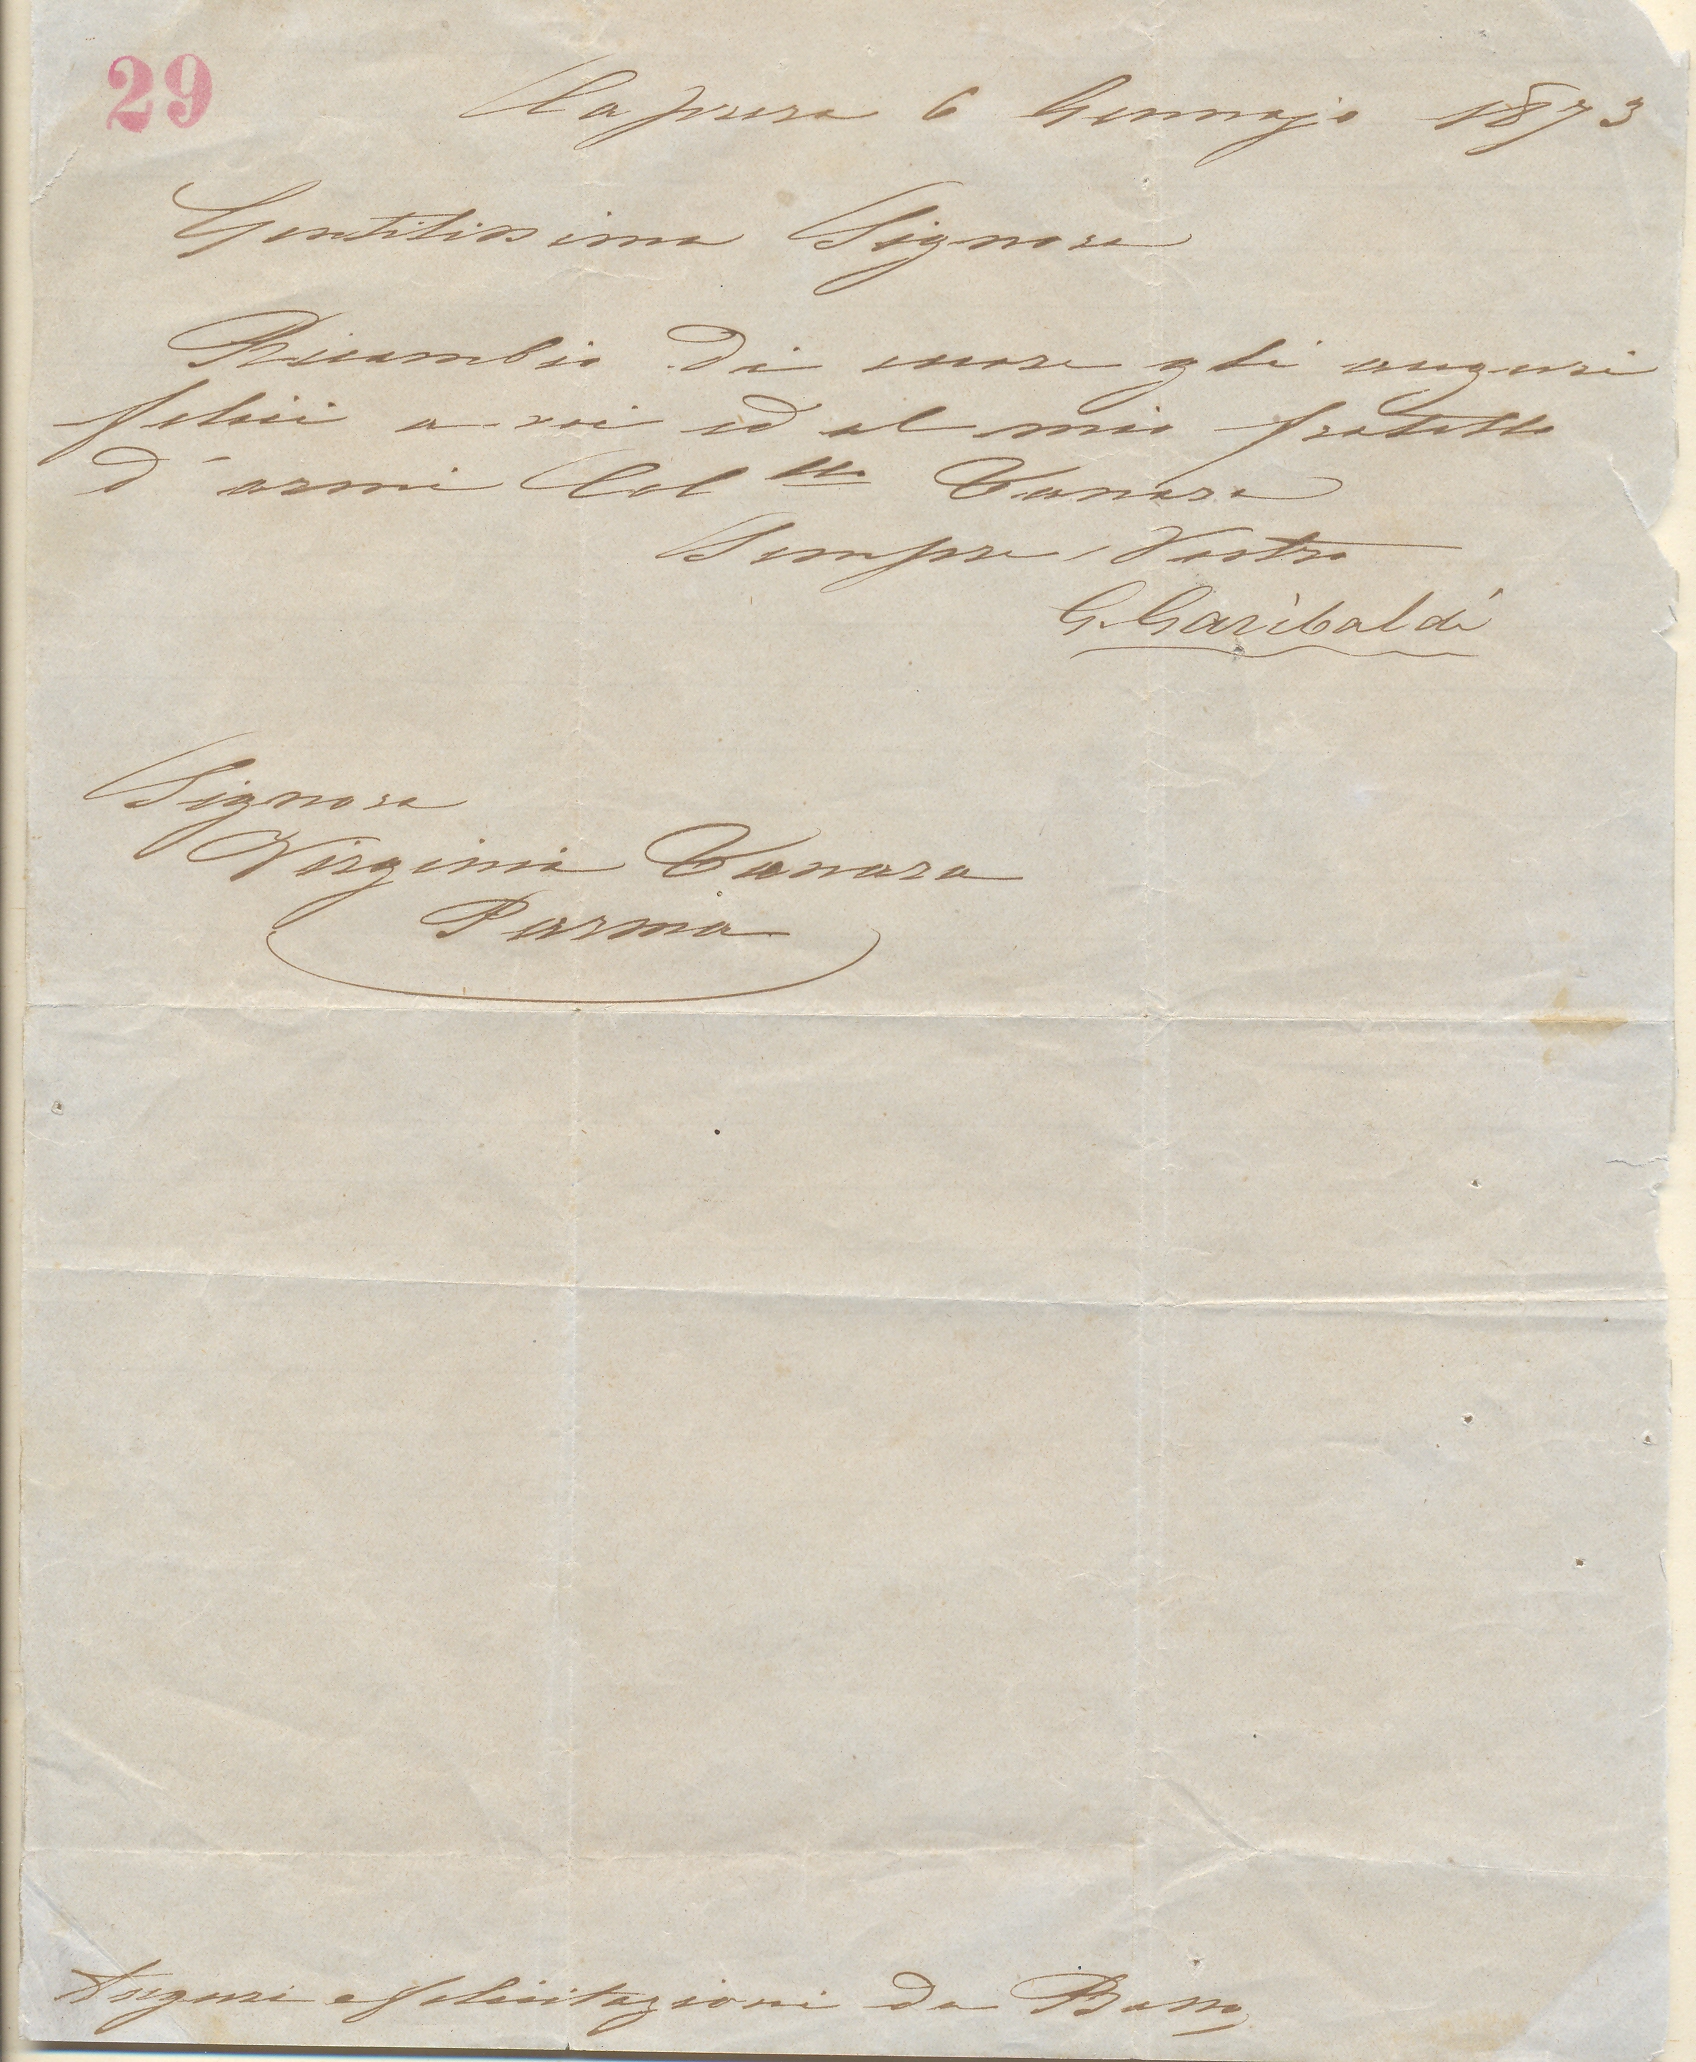 29
Caprera 6 Gennajo 1873
Gentilissima Signora
Ricambio di cuore gli auguri
felici a voi ed al mio fratello
d'armi Col llo Tanara
Sempre Vostro
G. Garibaldi
Signora
Virginia Tanara
Parma
Auguri e felicitazioni da Basso